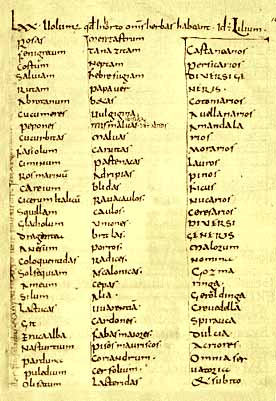 LXX. Uolum' qd' In horto omīs herbas habeant. Id: Lilium.
Rosas
Fenigrecum
Costum
Salviam
Rutam
Abrotanum
Cucumeres
Pepones
Cucurbitas
Fasiolum
Ciminum
Rosmarinū
Careium
Cicerum italicū
Squillam
Gladiolum
Dragantea
Anesum
Coloquentidas
Solsequiam
Ameum
Silum
Lactucas
Git
Eruca alba
Nasturtium
Parduna
Puledium
Olisatum
mentastrum
Tanazitam
Neptam
Febrefugiam
Papaver
Betas
Vulgigina
mismalvas
malvas
Carvitas
Pastenacas
Adripias
blidas
Ravacaulos
Caulos
Uniones
britlas
Porros
Radices
Ascalonicas
Cepas
Alia
Warentia
Cardones
Fabas maiores
Pisos mauriscos
Coriandrum
Cerfolium
Lacteridas
Castanearios
Persicarios
DIVERSI GE
NERIS
Cotoniarios
Avellanarios
Amandala
rios
Morarios
Lauros
Pinos
Ficus
Nucarios
Ceresarios
DIVERSI
GENERIS
malorum
nomina
Gozma
ringa
Geroldinga
Crevedella
Spirauca
Dulcia
Acriores
Omnia ser
vatoria
& subito